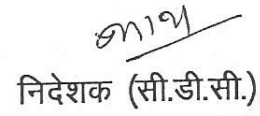 निदेशक (सी.डी.सी.)